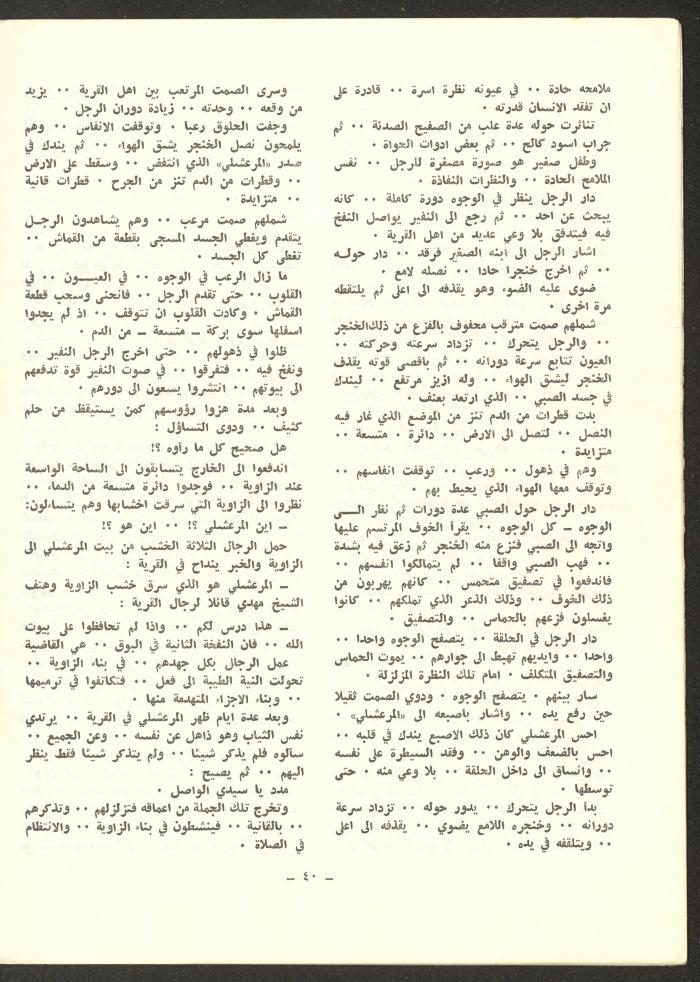 ملامحه حادة ٠٠ في عيونه نظرة اسرة ٠٠ قادرة على
ان تفقد الانسان قدرته ٠
تناثرت حوله عدة علب من الصفيح الصدئة ٠٠ ثم
جراب اسود كالح ٠٠ ثم بعض ادوات الحواة ٠
وطفل صغير هو صورة مصغرة للرجل ٠٠ نفس
الملامح الحادة ٠٠ والنظرات النفاذة ٠
دار الرجل ينظر في الوجوه دورة كاملة ٠٠ كانه
يبحث عن احد ٠٠ ثم رجع الى النفير يواصل النفخ
فيه فيتدفق بلا وعي عديد من اهل القرية ٠
اشار الرجل الى ابنه الصغير فرقد ٠٠ دار حولـه
٠٠ ثم اخرج خنجرا حادا ٠٠ نصله لامع ٠
ضوى عليه الضوء وهو يقذفه الى اعلى ثم يلتقطه
مرة اخرى ٠
شملهم صمت مترقب محفوف بالفزع من ذلك الخنجر
٠٠ والرجل يتحرك ٠٠ تزداد سرعته وحركته ٠٠
العيون تتابع سرعة دورانه ٠٠ ثم باقصى قوته يقذف
الخنجر ليشق الهواء ٠٠ وله ازيز مرتفع ٠٠ ليندك
في جسد الصبي ٠٠ الذي ارتعد بعنف ٠
بدت قطرات من الدم تنز من الموضع الذي غار فيه
النصل ٠٠ لتصل الى الارض ٠٠ دائرة ٠ متسعة ٠٠
متزايدة ٠
وهم في ذهول ٠٠ ورعب ٠٠ توقفت انفاسهم ٠٠
وتوقف معها الهواء الذي يحيط بهم ٠
دار الرجل حول الصبي عدة دورات ثم نظر الـــى
الوجوه ــ كل الوجوه ٠٠ يقرأ الخوف المرتسم عليها
واتجه الى الصبي فنزع منه الخنجر ثم زعق فيه بشدة
٠٠ فهب الصبي واقفا ٠٠ لم يتمالكوا انفسهم ٠٠
فاندفعوا في تصفيق متحمس ٠٠ كانهم يهربون من
ذلك الخوف ٠٠ وذلك الذعر الذي تملكهم ٠٠ كانوا
يغسلون فزعهم بالحماس ٠٠ والتصفيق ٠
دار الرجل في الحلقة ٠٠ يتصفح الوجوه واحدا ٠٠
واحدا ٠٠ وايديهم تهبط الى جوارهم ٠٠ يموت الحماس
والتصفيق المتكلف ٠ امام تلك النظرة المزلزلة ٠
سار بينهم ٠ يتصفح الوجوه ٠ ودوي الصمت ثقيلا
حين رفع يده ٠٠ واشار باصبعه الى «المرعشلي» ٠
احس المرعشلي كان ذلك الاصبع يندك في قلبه ٠٠
احس بالضعف والوهن ٠٠ وفقد السيطرة على نفسه
٠٠ وانساق الى داخل الحلقة ٠٠ بلا وعي منه ٠ حتى
توسطها ٠
بدأ الرجل يتحرك ٠٠ يدور حوله ٠٠ تزداد سرعة
دورانه ٠٠ وخنجره اللامع يضوي ٠٠ يقذفه الى اعلى
٠٠ ويتلقفه في يده ٠
وسرى الصمت المرتعب بين اهل القرية ٠٠ يزيد
من وقعه ٠٠ وحدته ٠٠ زيادة دوران الرجل ٠
وجفت الحلوق رعبا ٠ وتوقفت الانفاس ٠٠ وهم
يلمحون نصل الخنجر يشق الهواء ٠٠ ثم يندك في
صدر «المرعشلي» الذي انتفض ٠٠ وسقط على الارض
٠٠ وقطرات من الدم تنز من الجرح ٠ قطرات قانية
٠٠ متزايدة ٠
شملهم صمت مرعب ٠٠ وهم يشاهدون الرجـل
يتقدم ويغطي الجسد المسجى بقطعة من القماش ٠٠
تغطى كل الجسد ٠
ما زال الرعب في الوجوه ٠٠ في العيـــون ٠٠ في
القلوب ٠٠ حتى تقدم الرجل ٠٠ فانحنى وسحب قطعة
القماش ٠ وكادت القلوب ان تتوقف ٠٠ اذ لم يجدوا
اسفلها سوى بركة ــ متسعة ــ من الدم ٠
ظلوا في ذهولهم ٠٠ حتى اخرج الرجل النفير ٠٠
ونفخ فيه ٠٠ فتفرقوا ٠٠ في صوت النفير قوة تدفعهم
الى بيوتهم ٠٠ انتشروا يسعون الى دورهم ٠
وبعد مدة هزوا رؤوسهم كمن يستيقظ من حلم
كثيف ٠٠ ودوى التساؤل :
هل صحيح كل ما رأوه ؟!
اندفعوا الى الخارج يتسابقون الى الساحة الواسعة
عند الزاوية ٠٠ فوجدوا دائرة متسعة من الدماء ٠٠
نظروا الى الزاوية التي سرقت اخشابها وهم يتساءلون:
ــ اين المرعشلي ؟! ٠٠ اين هو ؟!
حمل الرجال الثلاثة الخشب من بيت المرعشلي الى
الزاوية والخبر ينداح في القرية :
ــ المرعشلي هو الذي سرق خشب الزاوية وهتف
الشيخ مهدي قائلا لرجال القرية :
ــ هذا درس لكم ٠٠ واذا لم تحافظوا على بيوت
الله ٠٠ فان النفخة الثانية في البوق ٠٠ هي القاضية
عمل الرجال بكل جهدهم ٠٠ في بناء الزاوية ٠٠
تحولت النية الطيبة الى فعل ٠٠ فتكاتفوا في ترميمها
٠٠ وبناء الاجزاء المتهدمة منها ٠
وبعد عدة ايام ظهر المرعشلي في القرية ٠٠ يرتدي
نفس الثياب وهو ذاهل عن نفسه ٠٠ وعن الجميع ٠٠
سألوه فلم يذكر شيئا ٠٠ ولم يتذكر شيئا فقط ينظر
اليهم ٠٠ ثم يصيح :
مدد يا سيدي الواصل ٠
وتخرج تلك الجملة من اعماقه فتزلزلهم ٠٠ وتذكرهم
٠٠ بالقانية ٠٠ فينشطون في بناء الزاوية ٠٠ والانتظام
في الصلاة ٠
ــ ٤٠ ــ